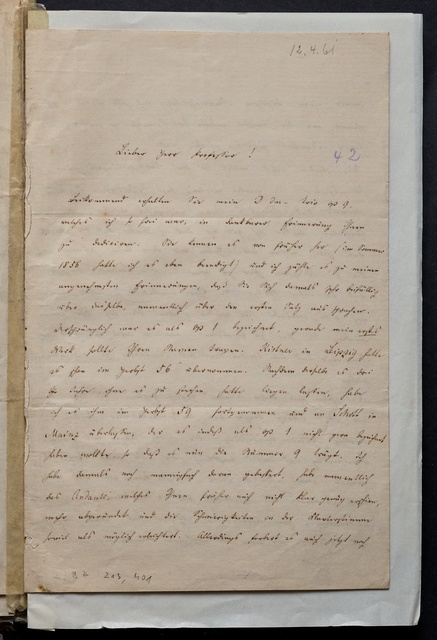 12.4.61
Lieber Herr Professor!
42
Beikommend erhalten Sie mein D dur Trio op 9.
welches ich so frei war, in dankbarer Erinnerung Ihnen
zu dediciren. Sie kennen es von früher her (im Sommer
1856 hatte ich es eben beendigt) und ich zähle es zu meinen
angenehmsten Erinnerungen, daß Sie sich damals sehr beifällig
über dasselbe, namentlich über den ersten Satz aussprachen.
Ursprünglich war es als op 1 bezeichnet, gerade mein erstes
Werk sollte Ihren Namen tragen. Kistner in Leipzig hatte
es schon im Herbst 56 übernommen. Nachdem derselbe es drei
Jahre ohne es zu stechen hatte liegen lassen, habe
ich es ihm im Herbst 59 fortgenommen und an Schott in
Mainz überlassen, der es indeß als op 1 nicht gern bezeichnet
haben wollte, so daß es nun die Nummer 9 trägt. Ich
habe damals noch mannigfach daran gebessert, habe namentlich
das Andante, welches Ihnen früher auch nicht klar genug erschien,
mehr abgerundet und die Schwierigkeiten in der Clavierstimme
soviel als möglich erleichtert. Allerdings fordert es auch jetzt noch